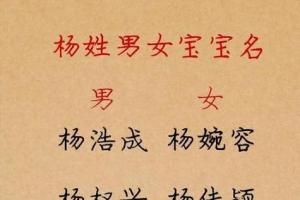 杨姓男女宝宝名
男 女
杨浩成 杨婉容